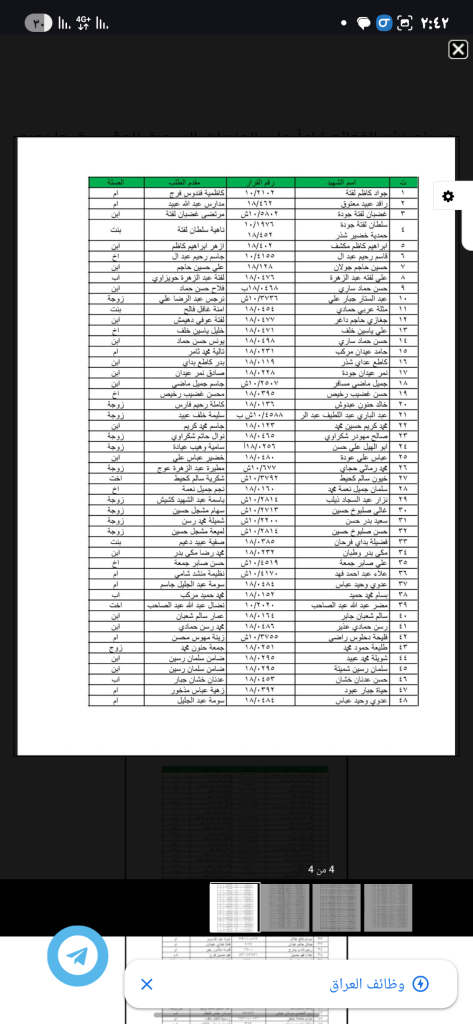 ٢:٤٢
4G+
٣٠
ت اسم الشهيد رقم القرار مقدم الطلب الصلة
١ جواد كاظم لفتة ١٠/٢١٠٢ كاظمية فندوس فرج ام
٢ راقد عبيد معتوق ١٨/٤٦٢ مدارس عبد الله عبيد ام
٣ غضبان لفتة جودة ١٠/٥٨٠٢ش مرتضى غضبان لفتة ابن
٤ سلطان لفتة جودة ١٠/١٩٧٦ ناهية سلطان لفتة بنت
حمدية خضير شذر ١٨/٤٥٢
٥ ابراهيم كاظم مكشف ١٨/٤٠٢ ازهر ابراهيم كاظم ابن
٦ قاسم رحيم عبد ال ١٠/٤١٥٥ جاسم رحيم عبد ال اخ
٧ حسين حاجم جولان ١٨/١٢٨ علي حسين حاجم ابن
٨ علي لفته عبد الزهرة ١٨/٠٤٧٦ لفتة عبد الزهرة حويزاوي اب
٩ حسن حماد ساري ١٨/٠٤٦٨ب فلاح حسن حماد ابن
١٠ عبد الستار جبار علي ١٠/٣٧٣٦ش نرجس عبد الرضا علي زوجة
١١ مثلة عربي حمادي ١٨/٠٤٥٤ امنة غافل فالح بنت
١٢ جفاري حاجم داغر ١٨/٠٤٧٧ لفتة عوفي دهيمش ابن
١٣ علي ياسين خلف ١٨/٠٤٧١ خليل ياسين خلف اخ
١٤ حسن حماد ساري ١٨/٠٤٩٨ يونس حسن حماد ابن
١٥ حامد عيدان مركب ١٨/٠٢٣١ تالية محمد ثامر ام
١٦ كاطع عداي شذر ١٨/٠١١٩ بدر كاطع بداي ابن
١٧ نمر عيدان جودة ١٨/٠٢٢٨ صادق نمر عيدان ابن
١٨ جميل ماضي مسافر ١٠/٢٥٠٧ش جاسم جميل ماضي ابن
١٩ حسن غضيب رخيص ١٨/٠٣٩٥ محسن غضيب رخيص اخ
٢٠ خالد حنون عيدوش ١٨/٠١٣٦ كاملة رحيم فارس زوجة
٢١ عبد الباري عبد اللطيف عبد الر ١٠/٤٥٨٨ش ب سليمة خلف عبيد زوجة
٢٢ محمد كريم حسين محمد ١٨/٠١٢٣ جاسم محمد كريم ابن
٢٣ صالح مهودر شكراوي ١٨/٠٤٦٥ نوال حاتم شكراوي زوجة
٢٤ ابو الهيل علي حسن ١٨/٠٢٥٦ سامية وهيب عيادة زوجة
٢٥ عباس علي عودة ١٨/٠٤٨٠ خضير عباس علي ابن
٢٦ محمد رماثي حجاي ١٠/٦٧٧ش مطيرة عبد الزهرة عوج زوجة
٢٧ خيون سالم كحيط ١٠/٣٧٩٢ش شكرية سالم كحيط اخت
٢٨ سلمان جميل نعمة محمد ١٨/٠١٦٠ نجم جميل نعمة اخ
٢٩ نزار عبد السجاد ذيلب ١٠/٢٨١٤ش باسمة عبد الشهيد كشيش زوجة
٣٠ غالي صليوخ حسين ١٠/٢٧١٣ش سهام مشجل حسين زوجة
٣١ سعيد بدر حسن ١٠/٢٢٠٠ش شميلة محمد رسن زوجة
٣٢ حسن صليوخ حسين ١٠/٢٨١٤ش لميعة مشجل حسين زوجة
٣٣ فضيلة بداي فرحان ١٨/٠٣٨٥ صفية عبيد دغيم بنت
٣٤ مكي بدر وطبان ١٨/٠٢٣٢ محمد رضا مكي بدر ابن
٣٥ علي صابر جمعة ١٠/٤٥١٩ش حسن صابر جمعة اخ
٣٦ علاء عبد احمد فهد ١٠/٤١٧٠ش نظيمة منشد شامي ام
٣٧ عدوي وحيد عباس ١٨/٠٤٨٤ سومة عبد الجليل جاسم ام
٣٨ بسام محمد حميد ١٨/٠١٥٢ محمد حميد مركب اب
٣٩ مضر عبد الله عبد الصاحب ١٠/٢٠٢٠ نضال عبد الله عبد الصاحب اخت
٤٠ سالم شعبان جابر ١٨/٠١٦٤ عمار سالم شعبان ابن
٤١ رسن حمادي غذير ١٨/٠٤٨٦ محمد رسن حمادي ابن
٤٢ فليحة دحلوس راضي ١٠/٣٧٥٥ش زينة مهوس محسن ام
٤٣ طليعة حمود محمد ١٨/٠٢٥١ جمعة حنون محمد زوج
٤٤ شويلة محمد عبيد ١٨/٠٢٩٥ ضامن سلمان رسين ابن
٤٥ سلمان رسين شميثة ١٨/٠٢٩٥ ضامن سلمان رسين ابن
٤٦ حسن عدنان خشان ١٨/٠٤٥٣ عدنان خشان جبار اب
٤٧ حياة جبار عبود ١٨/٠٣٩٢ زهية عباس مذخور ام
٤٨ عدوي وحيد عباس ١٨/٠٤٨٤ سومة عبد الجليل ام
4 من 4
وظائف العراق